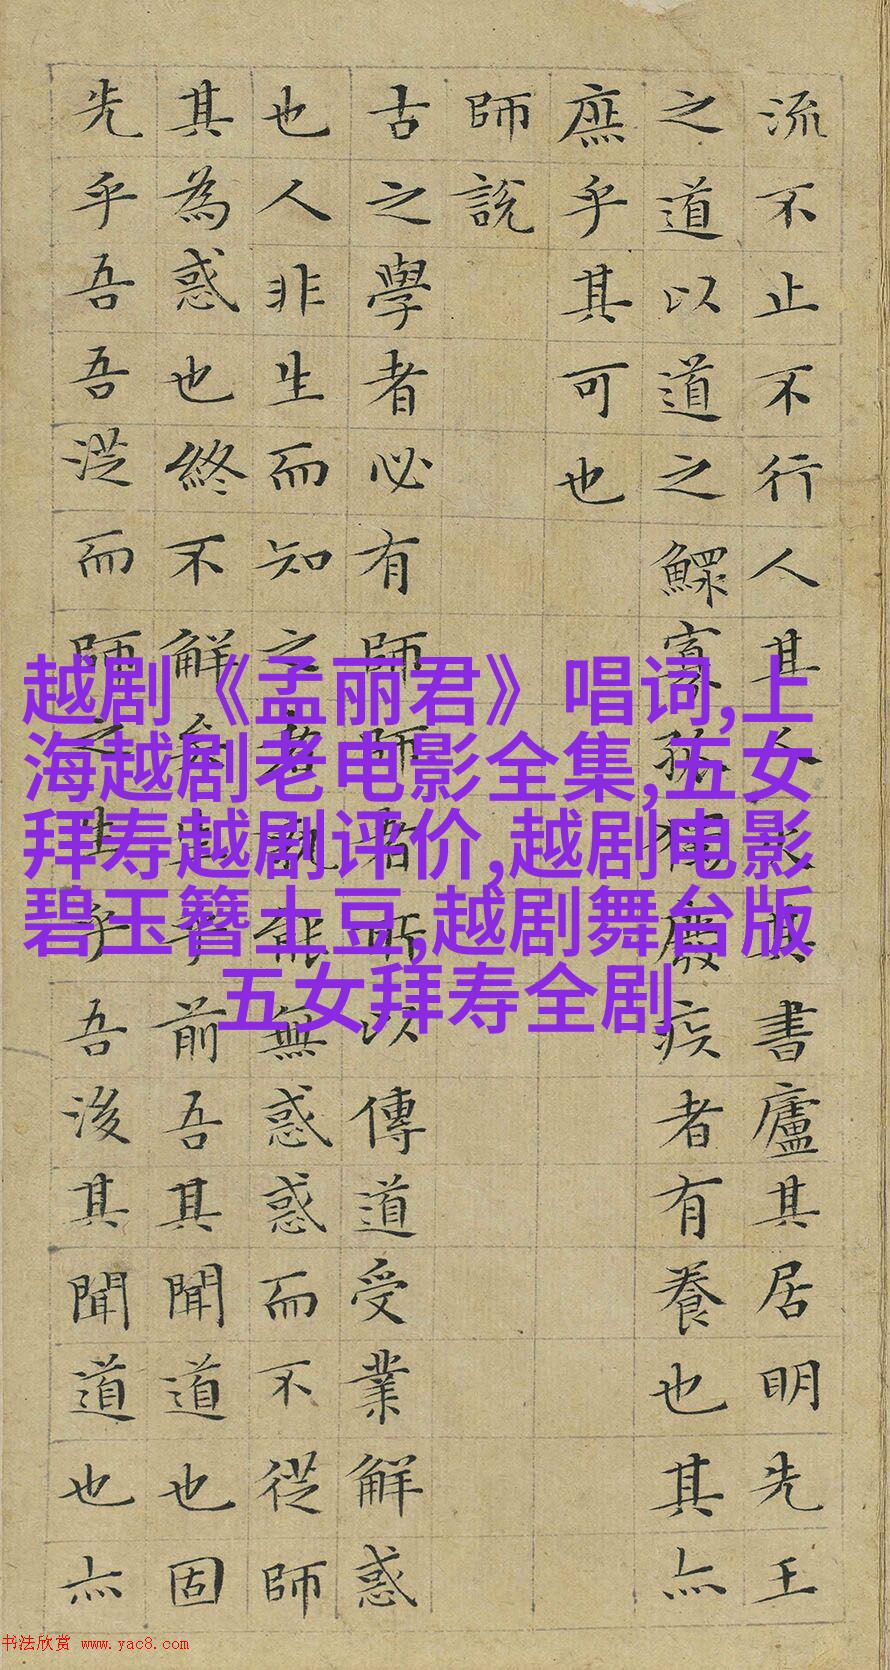 流不止不行人其人火其書廬其居明先王
之道以道之鰥寡孤獨廢疾者有養也其亦
庶乎其可也
師說
古之學者必有師師者所以傳道受業解惑
也人非生而知之者孰能無惑惑而不從師
其為惑也終不解矣生乎前吾其聞道也固
先乎吾吾從而師之生乎吾後其聞道也亦
越剧《孟丽君》唱词,上
海越剧老电影全集,五女
拜寿越剧评价,越剧电影
碧玉簪土豆,越剧舞台版
五女拜寿全剧
书法欣赏 www.yac8.com